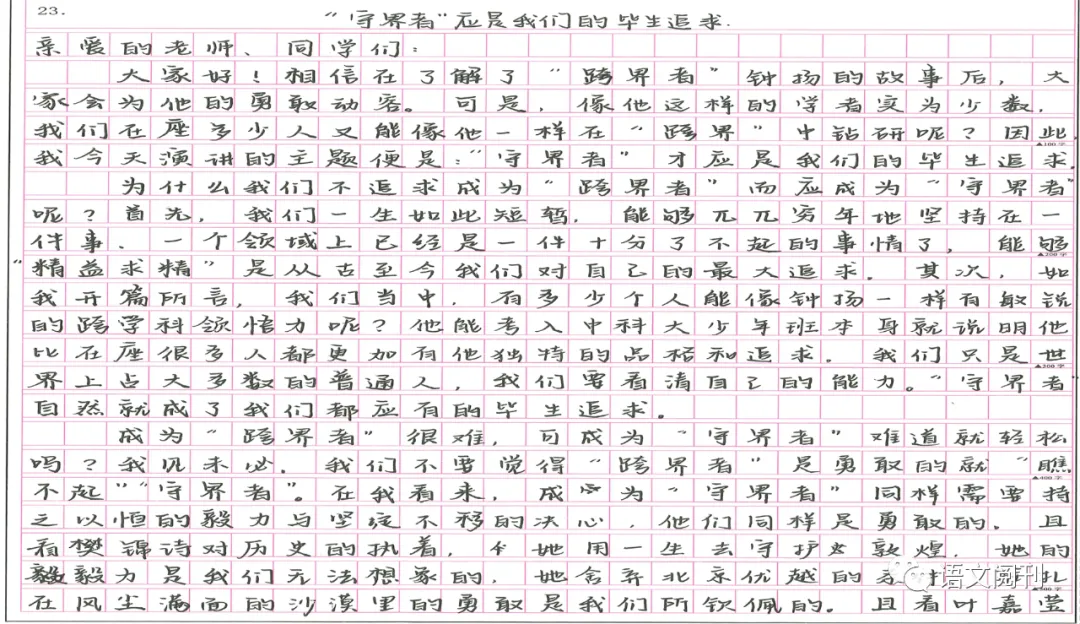 23.
“守界者”应是我们的毕生追求.
亲爱的老师、同学们：
大家好！相信在了解了“跨界者”钟扬的故事后，大
家会为他的勇敢动容。可是，像他这样的学者实为少数，
我们在座多少人又能像他一样在“跨界”中钻研呢？因此，
▲100字
我今天演讲的主题便是：“守界者”才应是我们的毕生追求.
为什么我们不追求成为“跨界者”而应成为“守界者”
呢？首先，我们一生如此短暂，能够兀兀穷年地坚持在一
件事、一个领域上已经是一件十分了不起的事情了，能够
▲200字
“精益求精”是从古至今我们对自己的最大追求。其次，如
我开篇所言，我们当中，有多少个人能像钟扬一样有敏锐
的跨学科领悟力呢？他能考入中科大少年班本身就说明他
比在座很多人都更加有他独特的品格和追求。我们只是世
界上占大多数的普通人，我们要看清自己的能力。“守界者”
▲300字
自然就成了我们都应有的毕生追求。
成为“跨界者”很难，可成为“守界者”难道就轻松
吗？我见未必。我们不要觉得“跨界者”是勇敢的就“瞧
▲400字
不起”“守界者”。在我看来，成为“守界者”同样需要持
之以恒的毅力与坚定不移的决心，他们同样是勇敢的。且
看樊锦诗对历史的执着，她用一生去守护敦煌，她的
毅力是我们无法想象的，她舍弃北京优越的
语文阅刊
在风尘满面的沙漠里的勇敢是我们所钦佩的。且看叶嘉莹